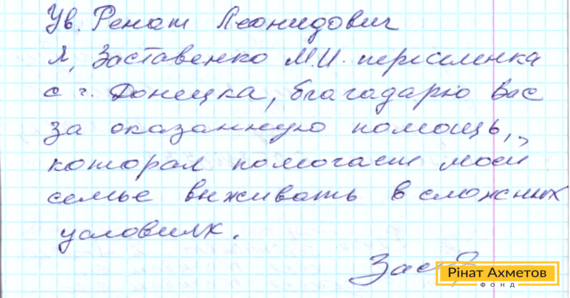 Ув. Ренат Леонидович
Я, Заставенко М.И. переселенка
с г. Донецка, благодарю Вас
за оказанную помощь,
которая помогает моей
семье выживать в сложных
условиях.
Рінат Ахметов
ФОНД